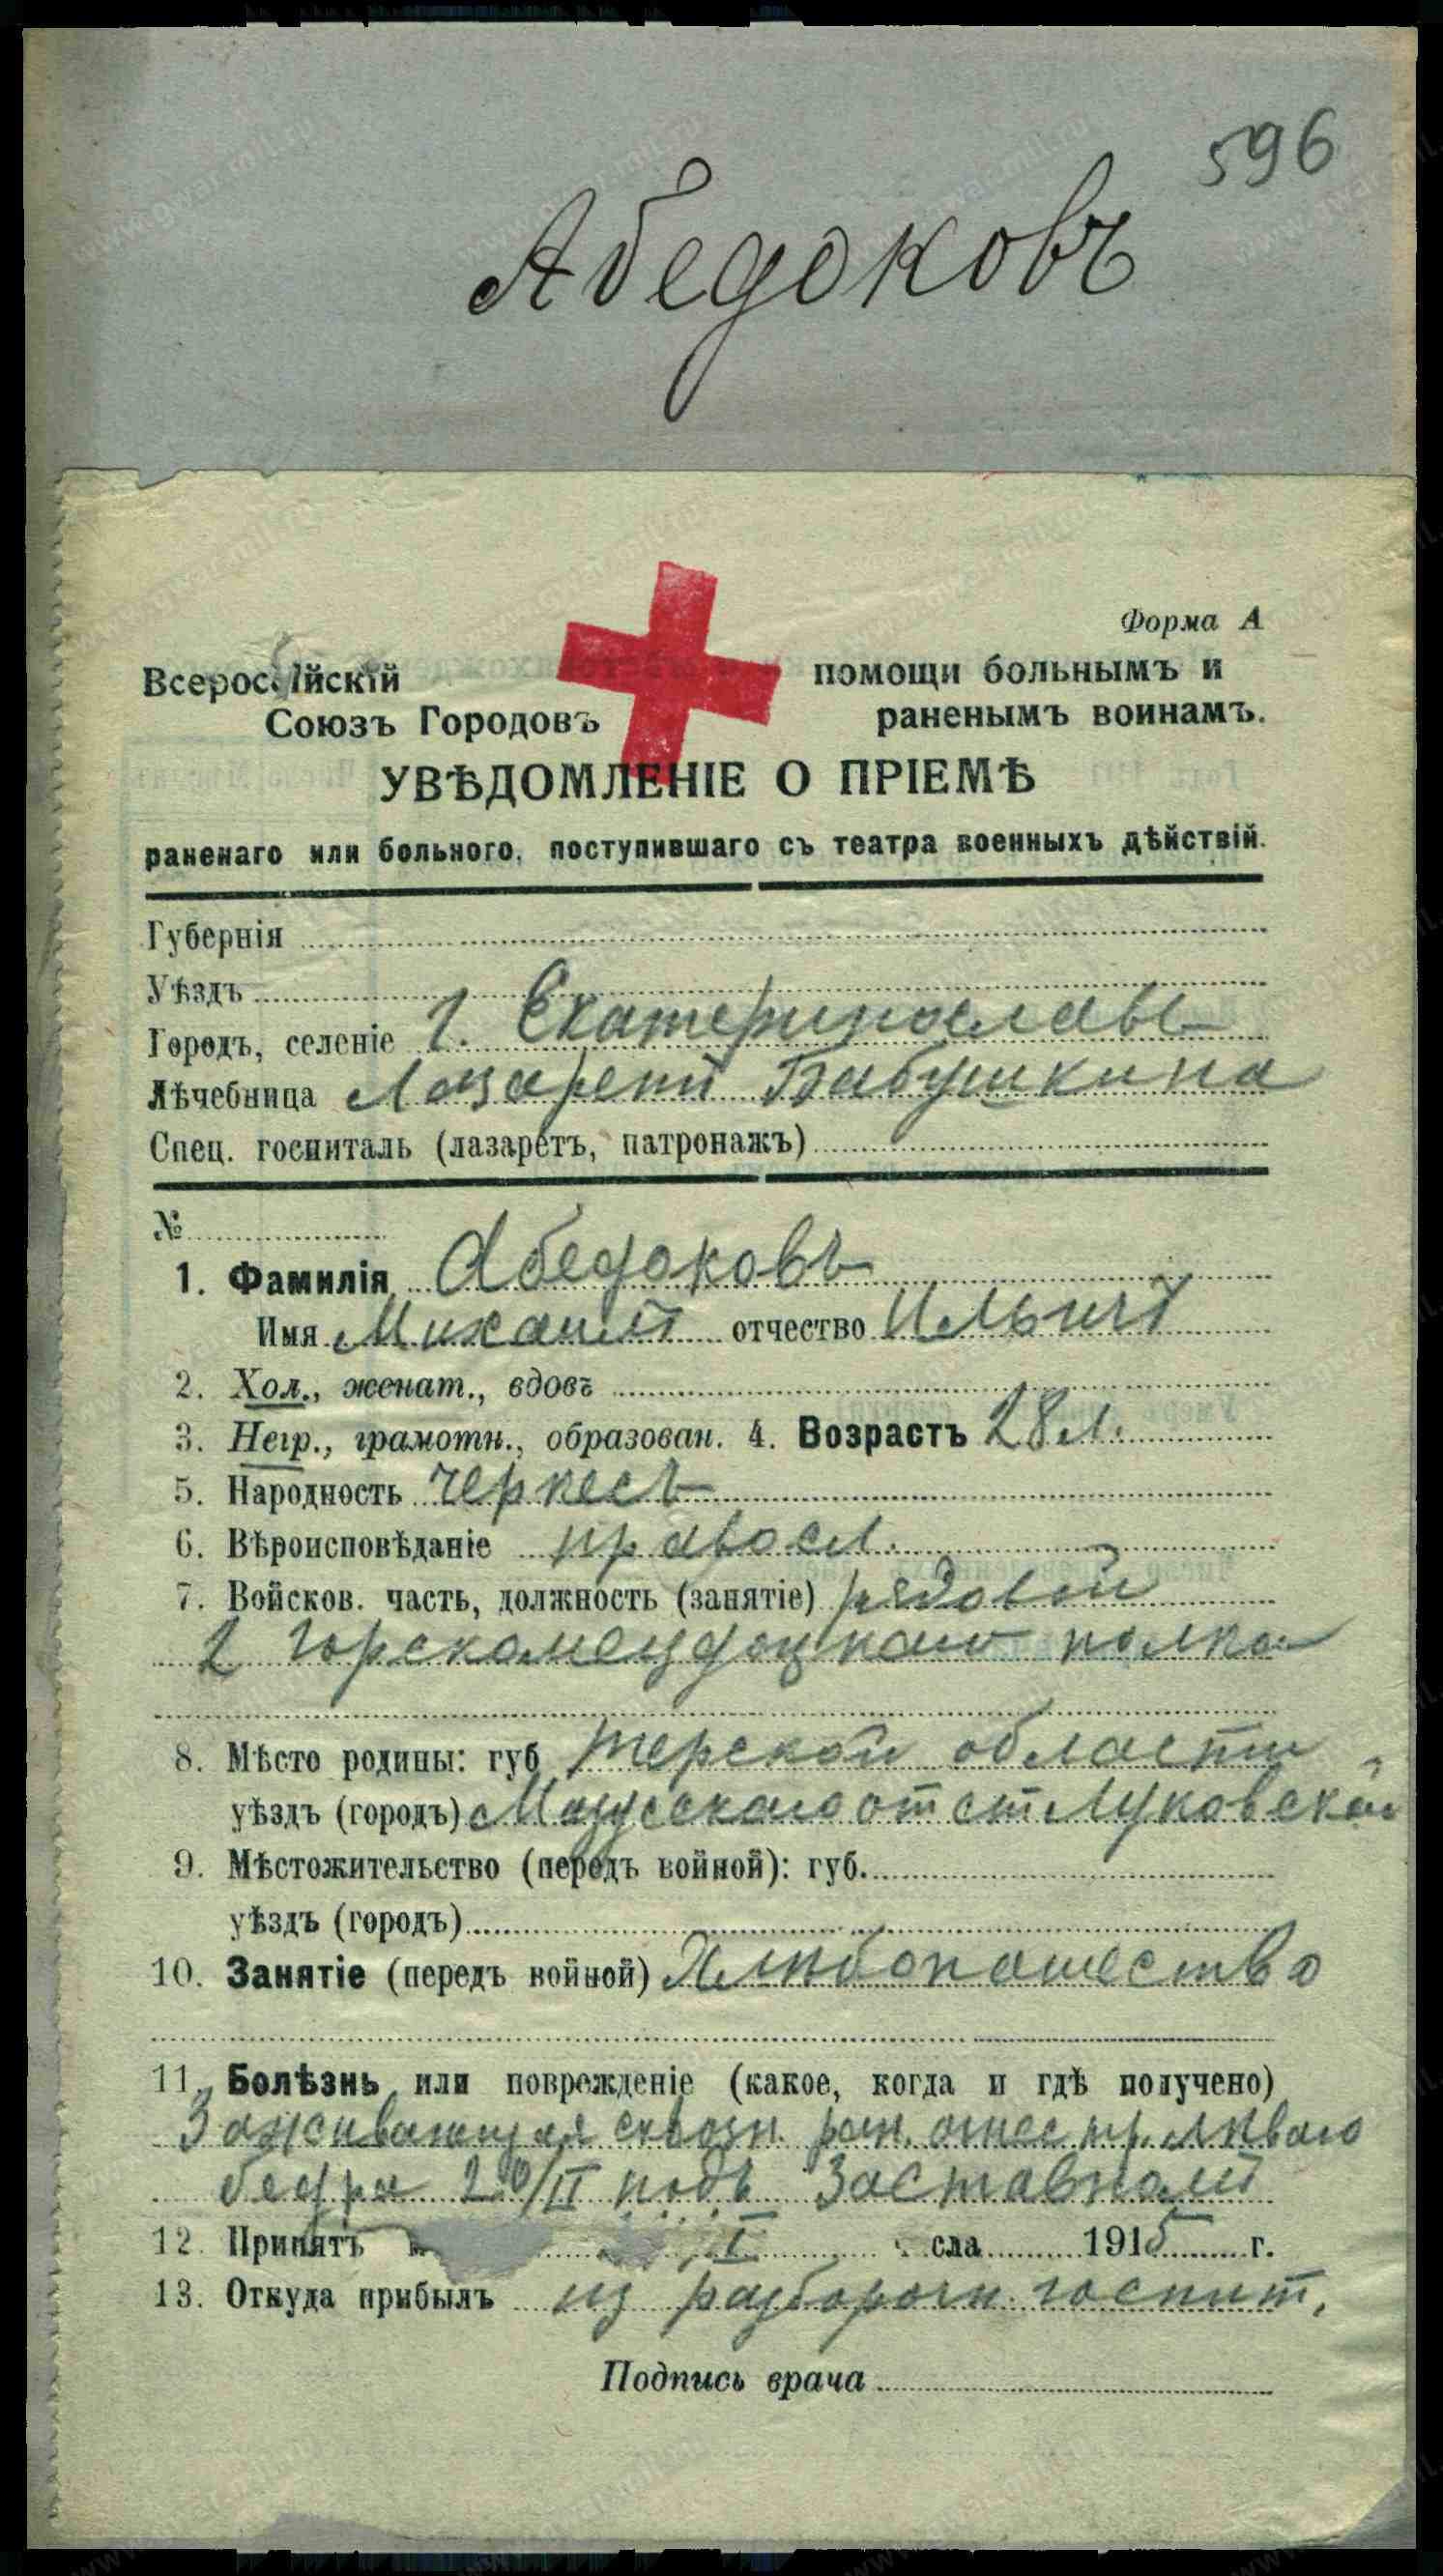 596
Абедоковъ
Форма А
Всероссійскій помощи больнымъ и
Союзъ Городовъ раненымъ воинамъ.
УВѢДОМЛЕНІЕ О ПРІЕМѢ
раненаго или больного, поступившаго съ театра военныхъ дѣйствій.
Губернія
Уѣздъ
Городъ, селеніе г. Екатеринославъ
Лѣчебница Лазаретъ Бабушкина
Спец. госпиталь (лазаретъ, патронажъ)
№
1. Фамилія Абедоковъ
Имя Михаилъ отчество Ильичъ
2. Хол., женат., вдовъ
3. Негр., грамотн., образован. 4. Возрастъ 28 л.
5. Народность черкесъ
6. Вѣроисповѣданіе правосл.
7. Войсков. часть, должность (занятіе) рядовой
2 Горско полка
8. Мѣсто родины: губ Терской области
уѣздъ (городъ) от ст Луковской
9. Мѣстожительство (передъ войной): губ.
уѣздъ (городъ)
10. Занятіе (передъ войной) Хлѣбопашество
11. Болѣзнь или поврежденіе (какое, когда и гдѣ получено)
Заживающая сквозн. ран. огнестр. лѣваго
бедра 20/II подъ Заставнами
12. Принятъ сла 1915 г.
13. Откуда прибылъ из разборочн. госпит.
Подпись врача
www.gwar.mil.ru